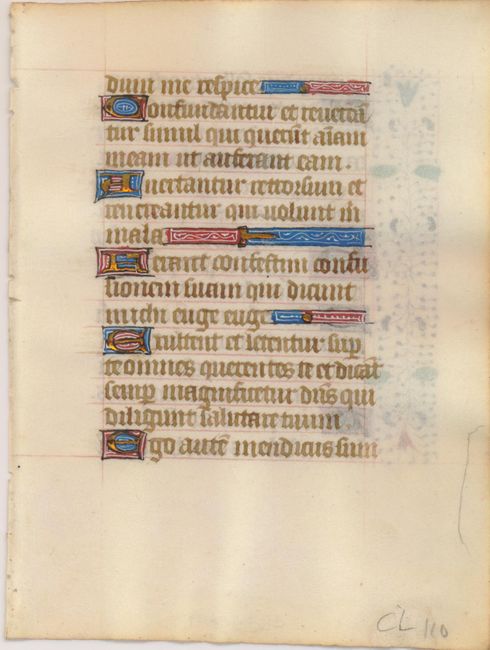 dum me respice
Confundantur et reuereā
tur simul qui querūt aīam
meam ut auferant eam .
Auertantur retrorsum et
reuereantur qui uolunt m
mala
Ferant confestim confu
sionem suam qui dicunt
michi euge euge
Exultent et letentur sup̄
te omnes querentes te et dicāt
semp̄ magnificetur dn̄s qui
diligunt salutare tuum .
Ego autē mendicus sum
CL 110